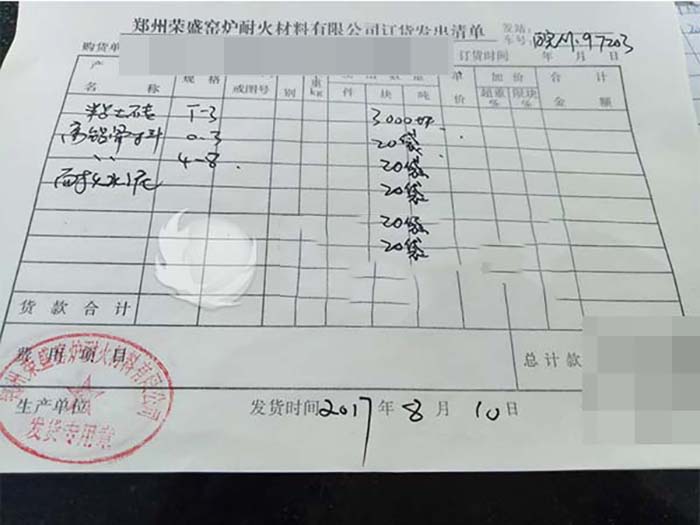 郑州荣盛窑炉耐火材料有限公司订货发出清单 发站:
车号: 皖M·97203
购货单 订货时间 年 月 日
产 规格 单 加价 合 计
名 称 或图号 别 重kg 件 块 吨 价 超重% 限块% 金 额
粘土砖 T-3 3000块
高铝骨料 0-3 20袋
〃 4-8 20袋
耐火水泥 20袋
20袋
20袋
货款合计
费用项目 总计款
生产单位 发货时间 2017 年 8 月 10 日
郑州荣盛窑炉耐火材料有限公司
发货专用章